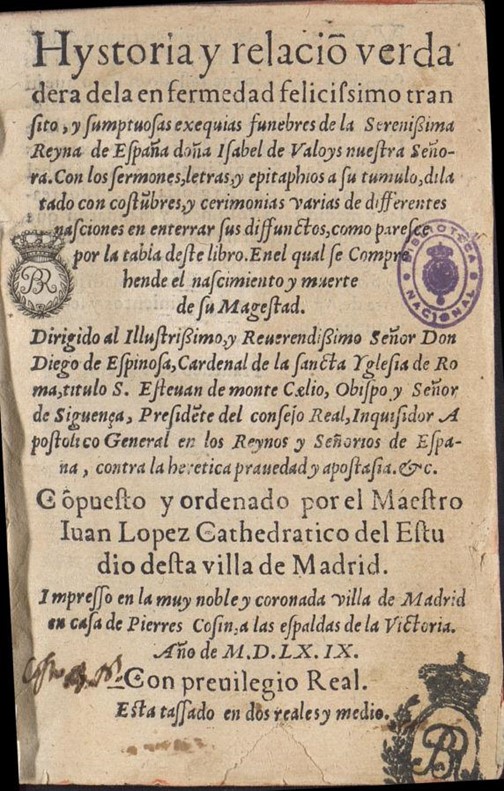 Hystoria y relaciõ verda
dera dela enfermedad felicissimo tran
sito, y sumptuosas exequias funebres de la Serenißima
Reyna de España doña Isabel de Valoys nuestra Seño-
ra. Con los sermones, letras, y epitaphios a su tumulo, dila
tado con costũbres, y cerimonias varias de differentes
nasciones en enterrar sus diffunctos, como paresce
por la tabla deste libro. Enel qual se Compre
hende el nascimiento y muerte
de su Magestad.
Dirigido al Illustrißimo, y Reuerendißimo Señor Don
Diego de Espinosa, Cardenal de la sancta Yglesia de Ro
ma, titulo S. Esteuan de monte Cælio, Obispo y Señor
de Siguença, Presidẽte del consejo Real, Inquisidor A
postolico General en los Reynos y Señorios de Espa-
na, contra la heretica prauedad y apostasia. &c.
Cõpuesto y ordenado por el Maestro
Iuan Lopez Cathedratico del Estu
dio desta villa de Madrid.
Impresso en la muy noble y coronada villa de Madrid
en casa de Pierres Cosin, a las espaldas de la Victoria.
Año de M.D.LX.IX.
Con preuilegio Real.
Esta tassado en dos reales y medio.
BIBLIOTECA NACIONAL
BR
BR